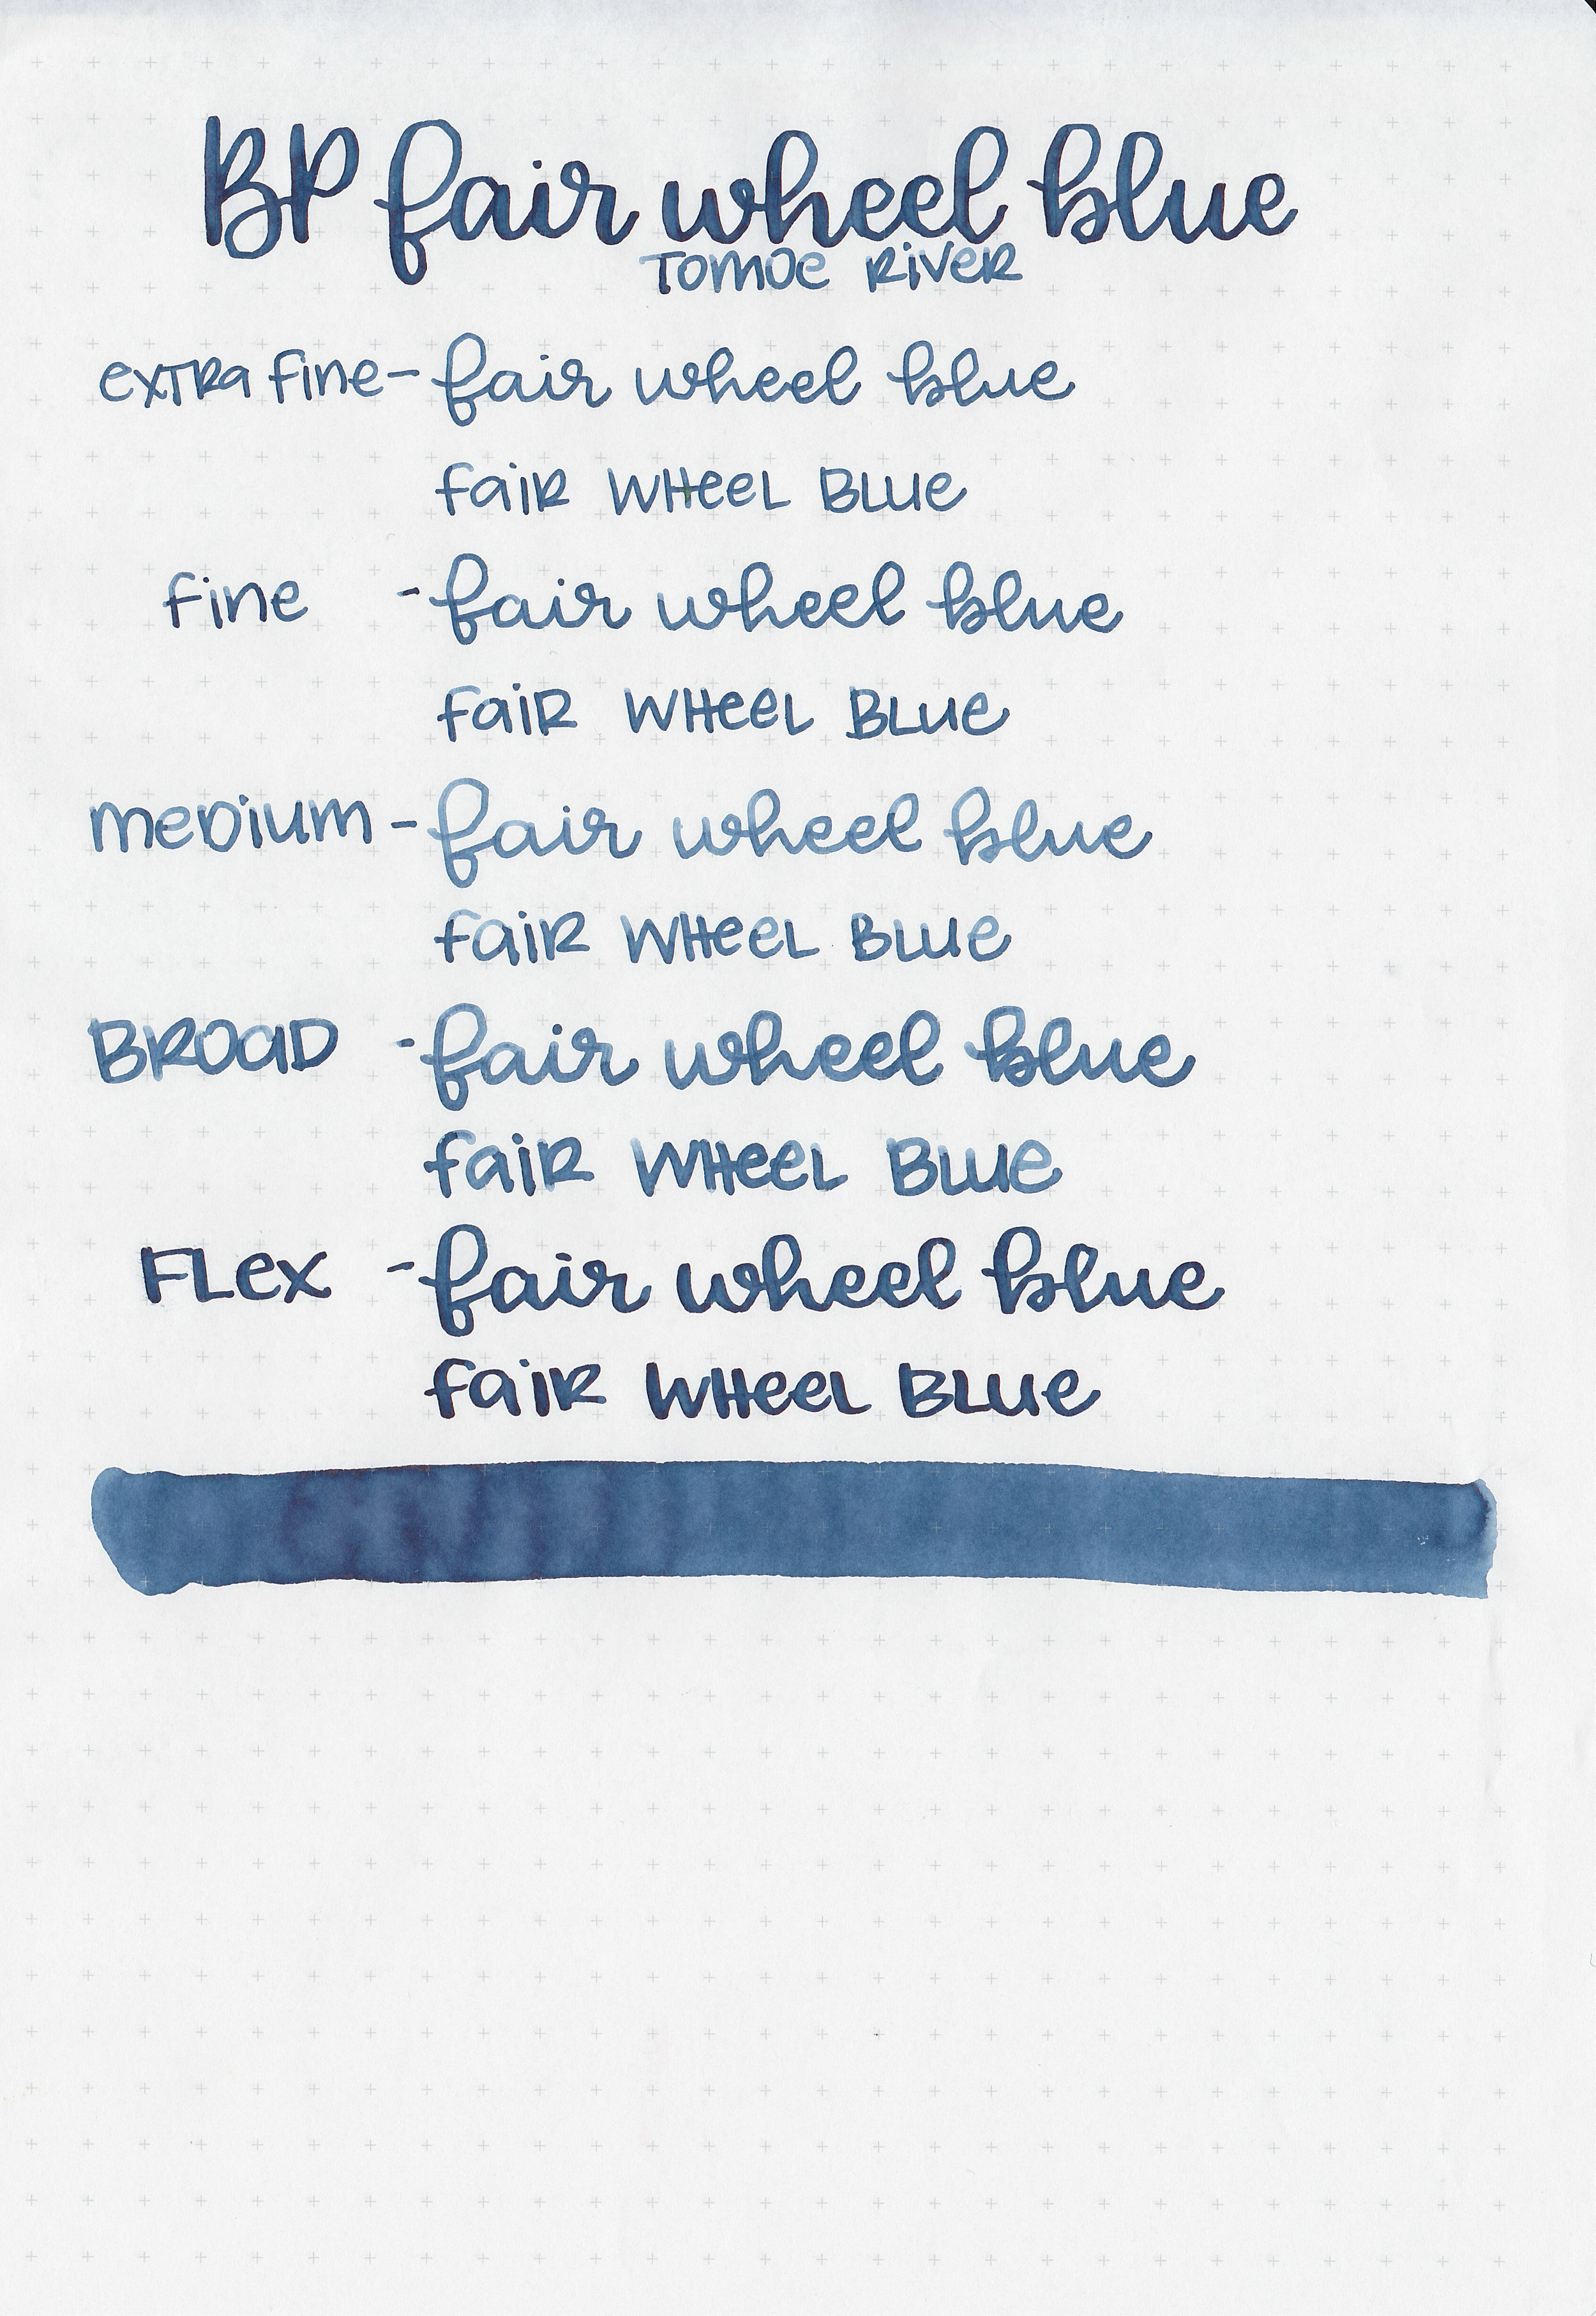 BP fair wheel blue
Tomoe River
extra fine - fair wheel blue
fair wheel blue
fine - fair wheel blue
fair wheel blue
medium - fair wheel blue
fair wheel blue
Broad - fair wheel blue
fair wheel blue
Flex - fair wheel blue
fair wheel blue